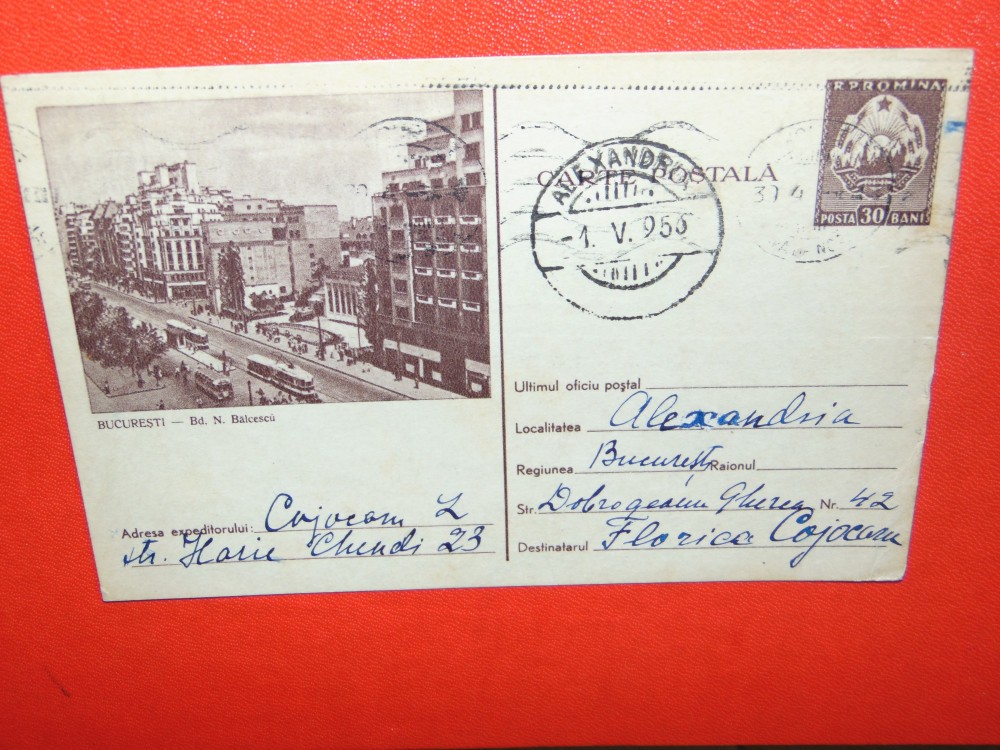 R.P.ROMINA
CARTE POSTALĂ
POSTA 30 BANI
ALEXANDRIA
-1. V. 956
30 4
BUCUREȘTI — Bd. N. Bălcescu
Ultimul oficiu poștal
Localitatea Alexandria
Regiunea București Raionul
Str. Dobrogeanu Gherea Nr. 42
Destinatarul Florica Cojocaru
Adresa expeditorului: Cojocaru I
str. Ilarie Chendi 23